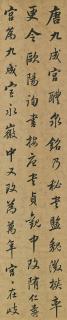 唐九成宮醴泉銘乃秘書監魏徵撰率
更令歐陽詢書按唐貞觀中改隋仁壽
宮為九成宮永徽中又改為萬年宮在岐